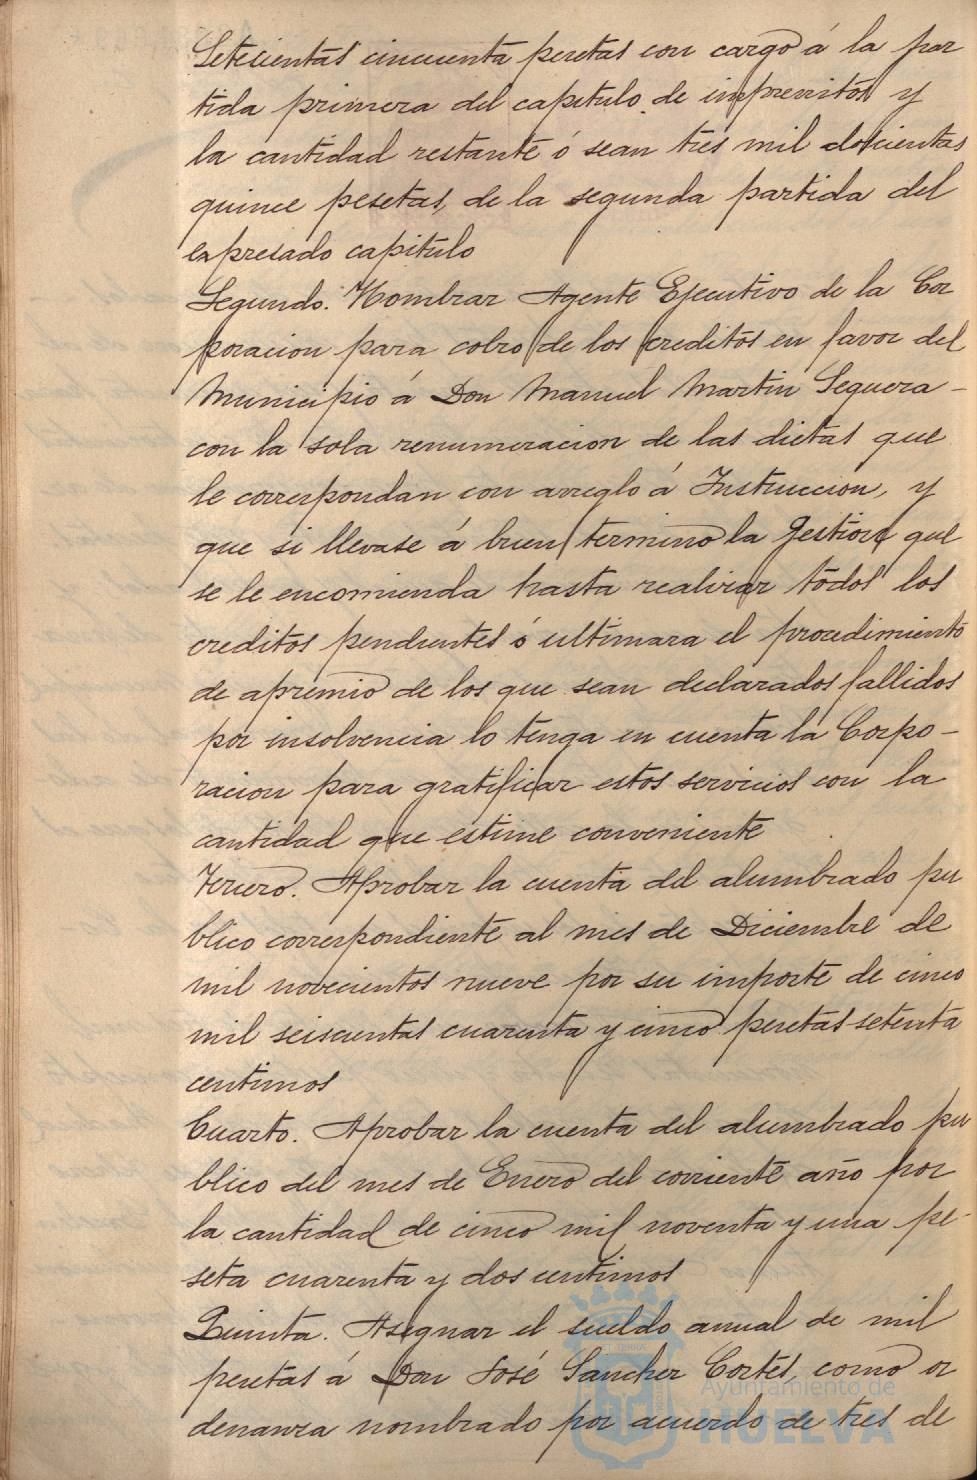 Setecientas cincuenta pesetas con cargo á la par
tida primera del capitulo de imprevistos y
la cantidad restante ó sean tres mil doscientas
quince pesetas, de la segunda partida del
expresado capitulo
Segundo. Nombrar Agente Ejecutivo de la Cor
poracion para cobro de los creditos en favor del
Municipio á Don Manuel Martin Sequera -
con la sola renumeracion de las dietas que
le correspondan con arreglo á Instruccion, y
que si llevase á buen termino la gestion que
se le encomienda hasta realizar todos los
creditos pendientes ó ultimara el procedimiento
de apremio de los que sean declarados fallidos
por insolvencia lo tenga en cuenta la Corpo-
racion para gratificar estos servicios con la
cantidad que estime conveniente
Tercero. Aprobar la cuenta del alumbrado pu
blico correspondiente al mes de Diciembre de
mil novecientos nueve por su importe de cinco
mil seiscientas cuarenta y cinco pesetas setenta
centimos
Cuarto. Aprobar la cuenta del alumbrado pu
blico del mes de Enero del corriente año por
la cantidad de cinco mil noventa y una pe-
seta cuarenta y dos centimos
Quinta. Asignar el sueldo anual de mil
pesetas á Don José Sanchez Cortés, como or
denanza nombrado por acuerdo de tres de
Ayuntamiento de
HUELVA